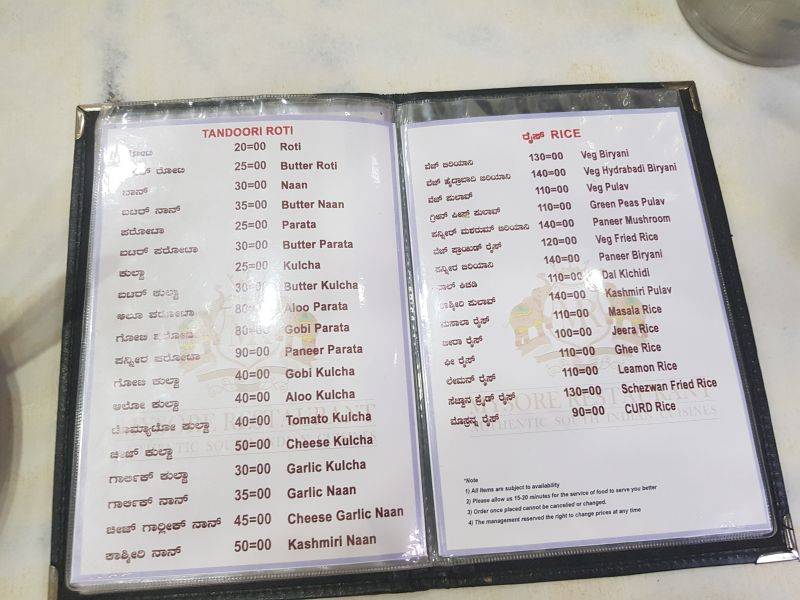 TANDOORI ROTI
20=00 Roti
ರೋಟಿ 25=00 Butter Roti
ನಾನ್ 30=00 Naan
ಬಟರ್ ನಾನ್ 35=00 Butter Naan
ಪರೋಟಾ 25=00 Parata
ಬಟರ್ ಪರೋಟಾ 30=00 Butter Parata
ಕುಲ್ಚಾ 25=00 Kulcha
ಬಟರ್ ಕುಲ್ಚಾ Butter Kulcha
ಆಲೂ ಪರೋಟಾ Aloo Parata
ಗೋಬಿ ಪರೋಟಾ 80=00 Gobi Parata
ಪನ್ನೀರ ಪರೋಟಾ 90=00 Paneer Parata
ಗೋಬಿ ಕುಲ್ಚಾ 40=00 Gobi Kulcha
ಆಲೋ ಕುಲ್ಚಾ 40=00 Aloo Kulcha
ಟೊಮ್ಯಾಟೋ ಕುಲ್ಚಾ 40=00 Tomato Kulcha
ಚೀಜ್ ಕುಲ್ಚಾ 50=00 Cheese Kulcha
ಗಾರ್ಲಿಕ್ ಕುಲ್ಚಾ 30=00 Garlic Kulcha
ಗಾರ್ಲಿಕ್ ನಾನ್ 35=00 Garlic Naan
ಚೀಜ್ ಗಾರ್ಲೀಕ್ ನಾನ್ 45=00 Cheese Garlic Naan
ಕಾಶ್ಮೀರಿ ನಾನ್ 50=00 Kashmiri Naan
ರೈಸ್ RICE
ವೆಜ್ ಬಿರಿಯಾನಿ 130=00 Veg Biryani
ವೆಜ್ ಹೈದ್ರಾಬಾದಿ ಬಿರಿಯಾನಿ 140=00 Veg Hydrabadi Biryani
ವೆಜ್ ಪುಲಾವ್ 110=00 Veg Pulav
ಗ್ರೀನ್ ಪೀಸ್ ಪುಲಾವ್ 110=00 Green Peas Pulav
ಪನ್ನೀರ್ ಮಶರುಮ್ ಬಿರಿಯಾನಿ 140=00 Paneer Mushroom
ವೆಜ್ ಪ್ರಾಯಿಡ್ ರೈಸ್ 120=00 Veg Fried Rice
ಪನ್ನೀರ ಬಿರಿಯಾನಿ 140=00 Paneer Biryani
ದಾಲ್ ಕಿಚಡಿ 110=00 Dal Kichidi
ಕಾಶ್ಮೀರಿ ಪುಲಾವ್ 140=00 Kashmiri Pulav
ಮಸಾಲಾ ರೈಸ್ 110=00 Masala Rice
ಜೀರಾ ರೈಸ್ 100=00 Jeera Rice
ಘೀ ರೈಸ್ 110=00 Ghee Rice
ಲೇಮನ್ ರೈಸ್ 110=00 Leamon Rice
ಸೆಜ್ವಾನ ಫ್ರೈಡ್ ರೈಸ್ 130=00 Schezwan Fried Rice
ಮೊಸ್ರನ್ನ ರೈಸ್ 90=00 CURD Rice
MYSORE RESTAURANT
AUTHENTIC SOUTH INDIAN CUISINES
*Note
1) All items are subject to availability
2) Please allow us 15-20 minutes for the service of food to serve you better
3) Order once placed cannot be cancelled or changed.
4) The management reserved the right to change prices at any time